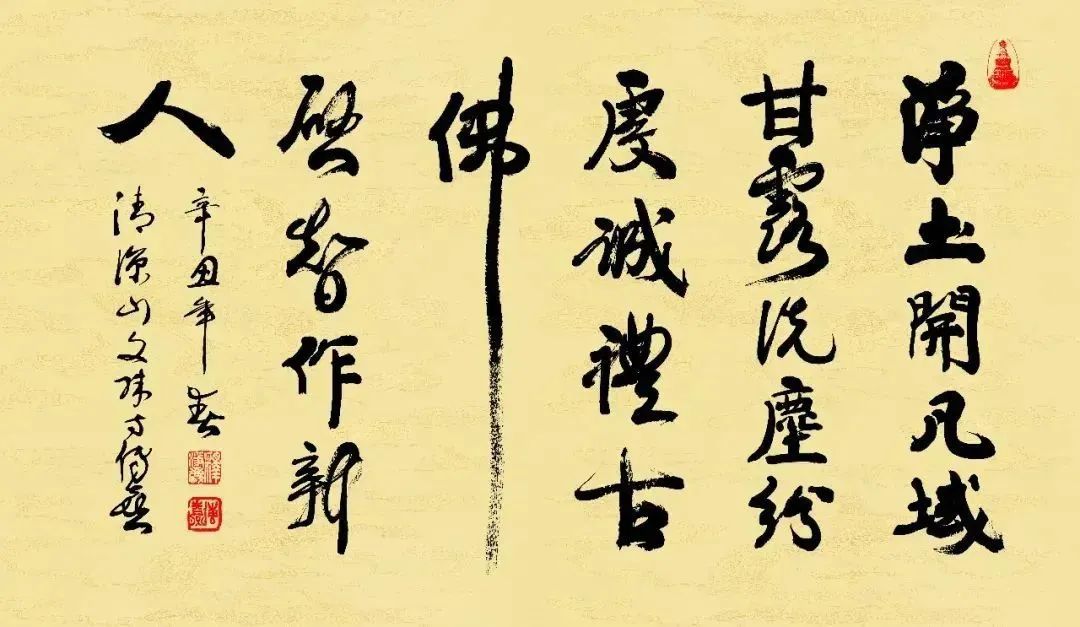 淨土開凡域
甘露洗塵紛
虔誠禮古
佛
啓智作新
人
辛丑年春
清源山文殊寺傳無